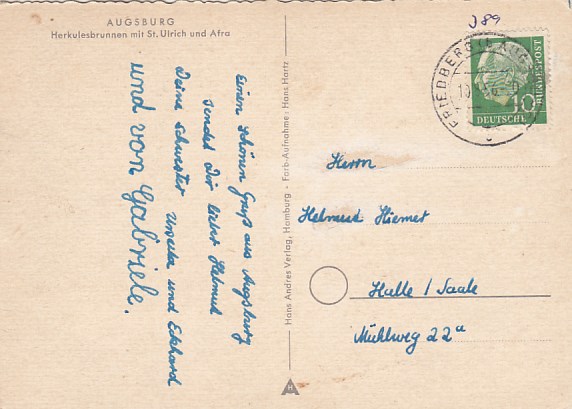 AUGSBURG
Herkulesbrunnen mit St. Ulrich und Afra
Einen schönen Gruß aus Augsburg
sendet Dir lieber Helmut
Deine Schwester Ursula und Eckhard
und von Gabriele.
Hans Andres Verlag, Hamburg - Farb-Aufnahme: Hans Hartz
HA
J89
FRIEDBERG
10
DEUTSCHE
BUNDESPOST
Herrn
Helmut Hiemer
Halle / Saale
Mühlweg 22a